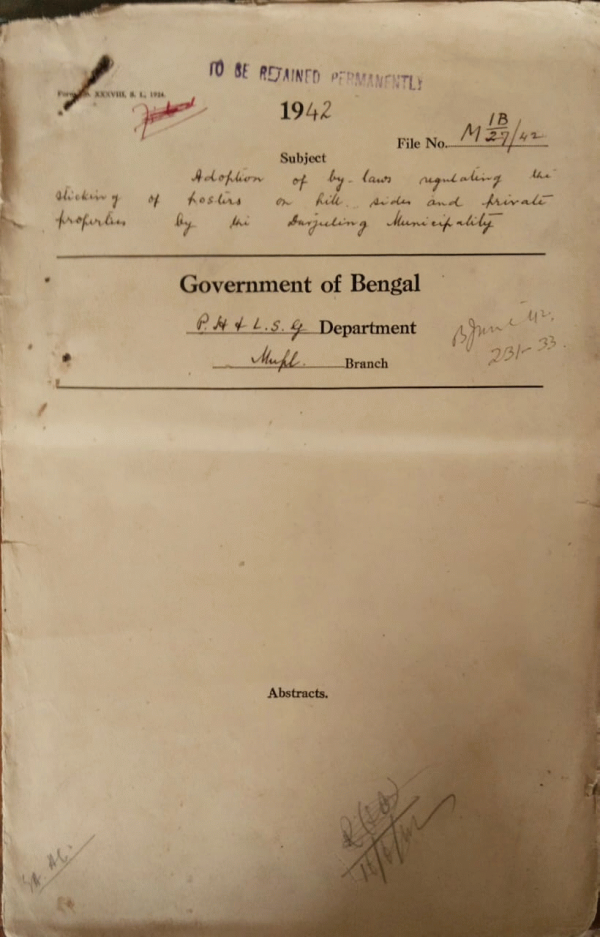 TO BE RETAINED PERMANENTLY
XXXVIII, S. L., 1934.
1942
File No. M 1B/27/42
Subject
Adoption of by-laws regulating the
sticking of posters on hill sides and private
properties by the Darjeeling Municipality
Government of Bengal
P. H & L. S. G Department
Mupl. Branch
B June '42.
231-33.
Abstracts.